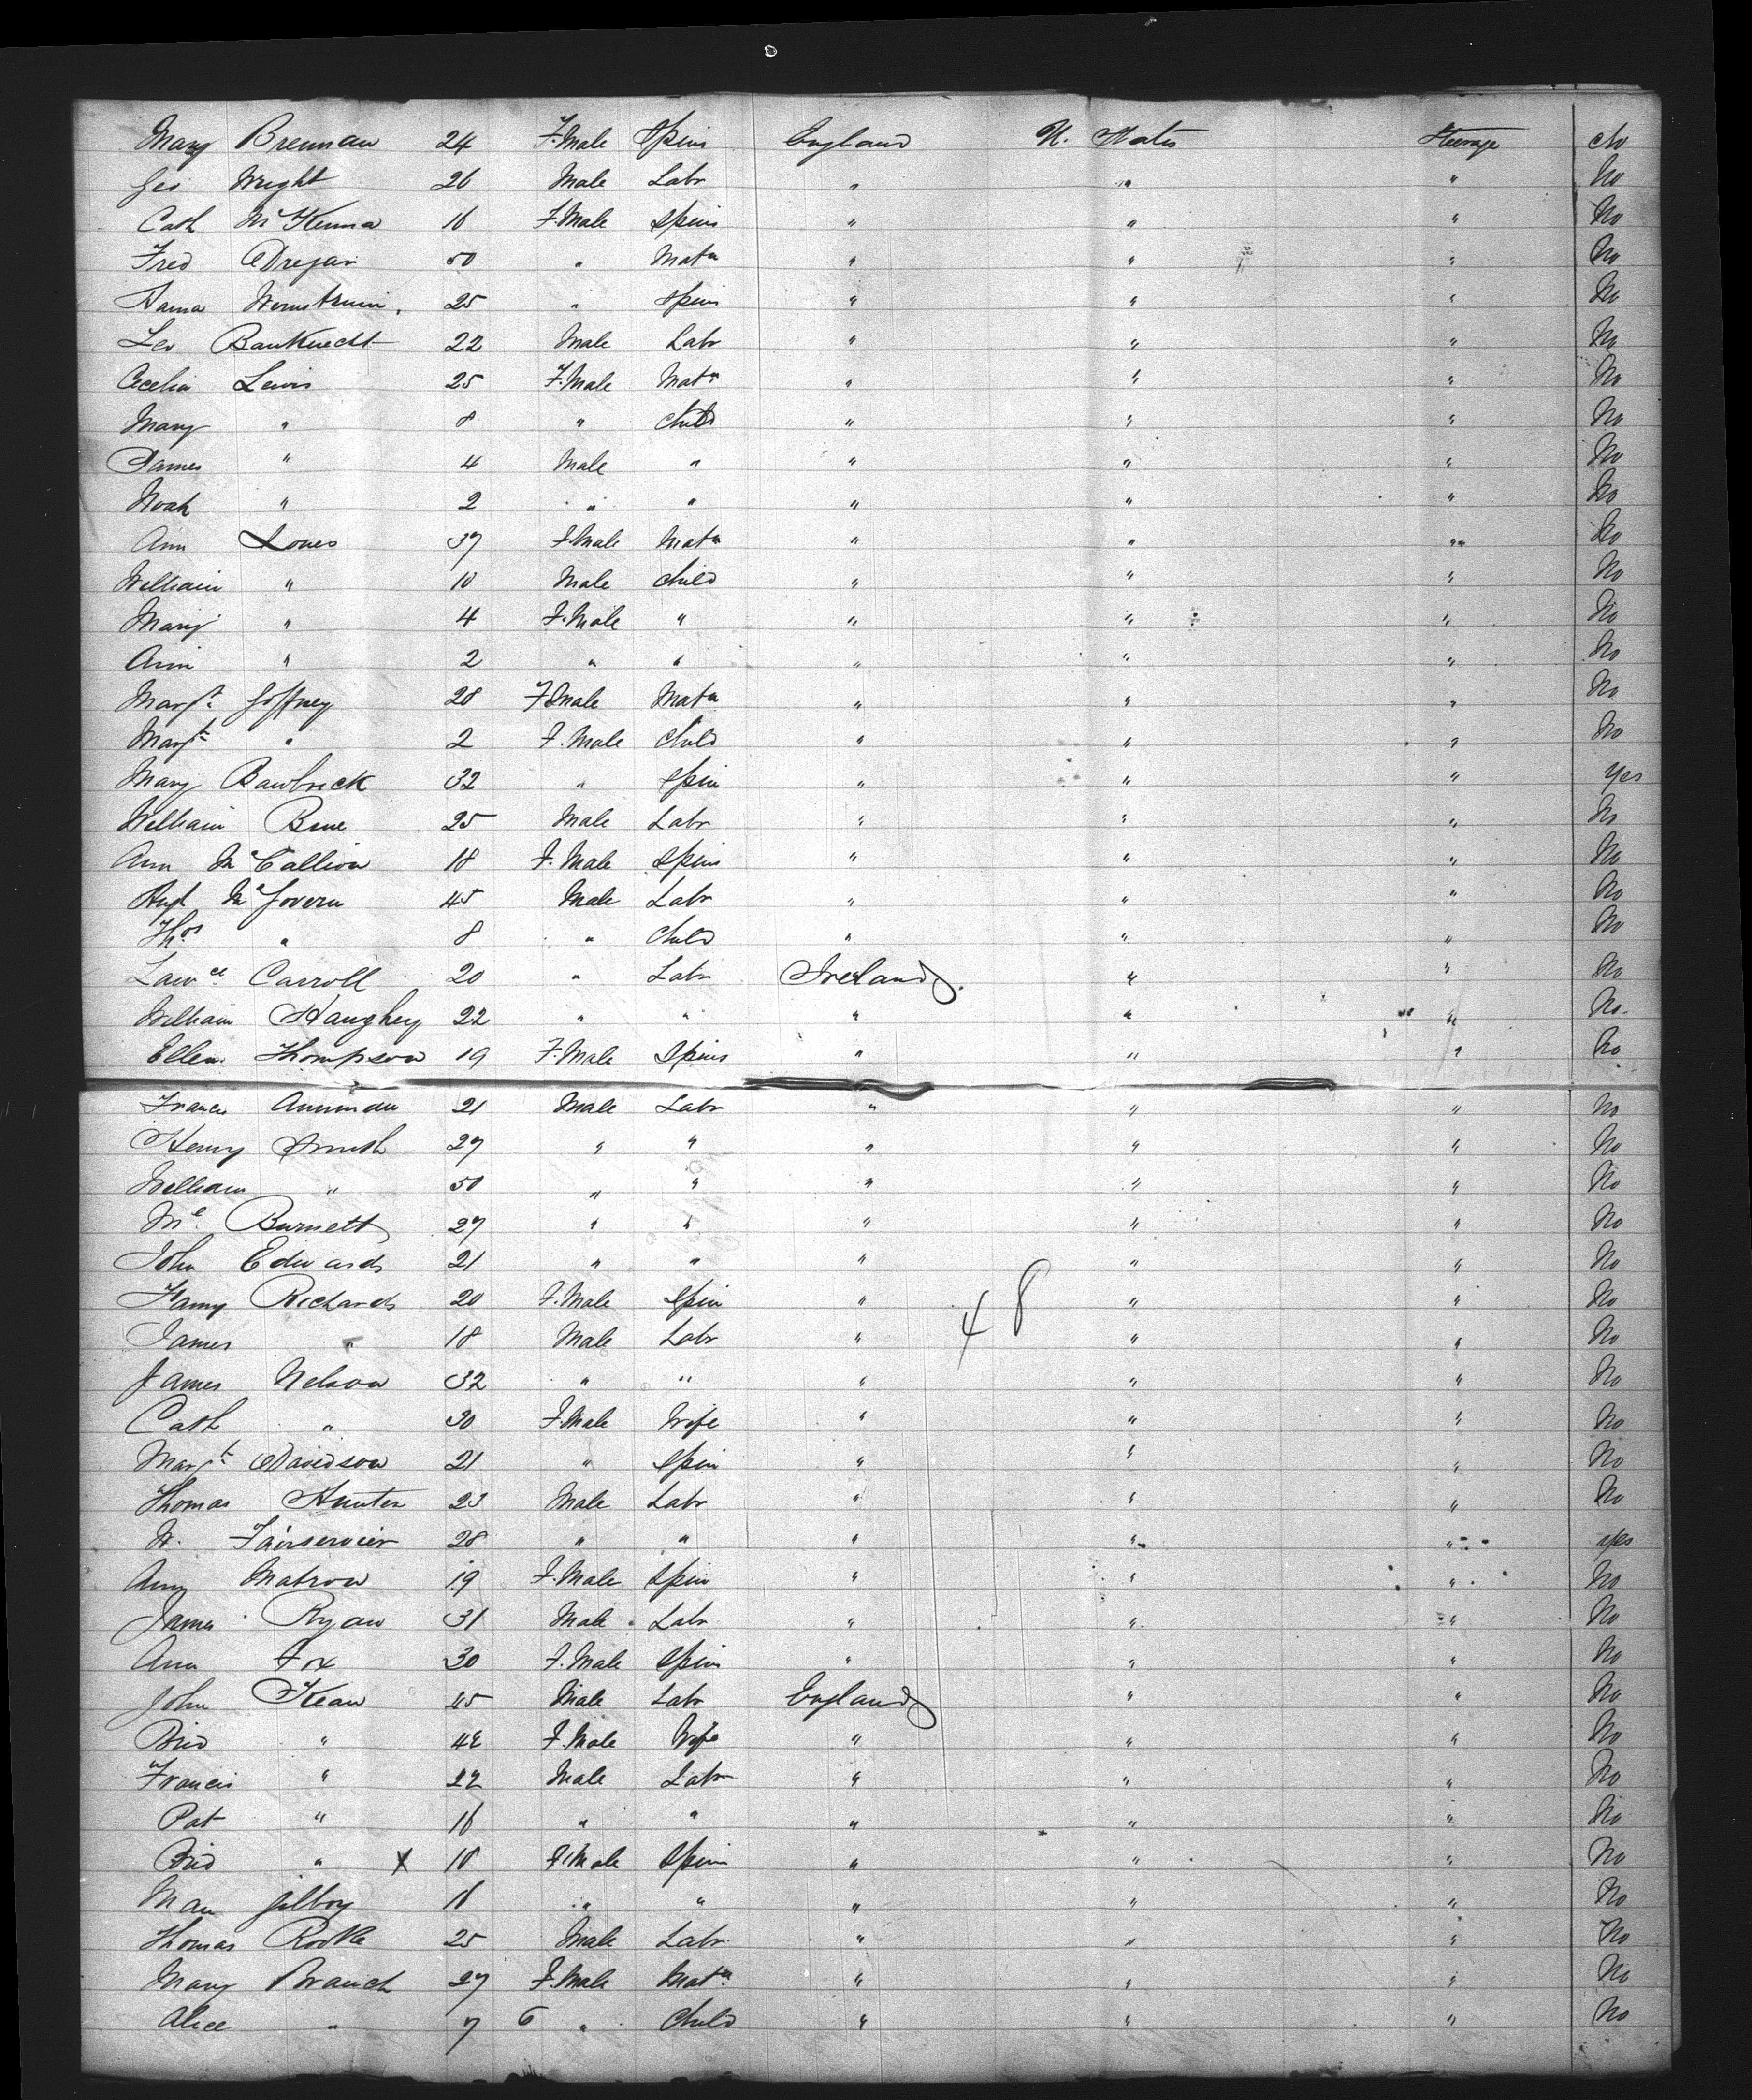 Mary Brennan 24 F.Male Spins England U. States Steerage No
Geo Wright 26 Male Labr " " " No
Cath McKenna 16 F.Male Spins " " " No
Fred 50 " Matn " " " No
25 " Spins " " " No
Leo Bauknecht 22 Male Labr " " " No
Cecelia Lewis 25 F.Male Matn " " " No
Mary " 8 " Child " " " No
James " 4 Male " " " " No
Noah " 2 " " " " " No
Ann Jones 37 F.Male Matn " " " No
William " 10 Male Child " " " No
Mary " 4 F.Male " " " " No
Ann " 2 " " " " " No
Margt Goffney 28 F.Male Matn " " " No
Margt " 2 F.Male Child " " " No
Mary Bawbrick 32 " Spin " " " Yes
William 25 Male Labr " " " No
Ann McCallion 18 F.Male Spins " " " No
McGovern 45 Male Labr " " " No
Thos " 8 " Child " " " No
Lawce Carroll 20 " Labr Ireland " " No
William Haughey 22 " " " " " No.
Ellen Thompson 19 F.Male Spins " " " No
Frances 21 Male Labr " " " No
Henry Smith 27 " " " " " No
William " 50 " " " " " No
Burnett 27 " " " " " No
John Edwards 21 " " " " " No
Fanny Richards 20 F.Male Spin " " " No
48
James " 18 Male Labr " " " No
James Nelson 32 " " " " " No
Cath " 30 F.Male Wife " " " No
Margt Davidson 21 " Spin " " " No
Thomas Hunter 23 Male Labr " " " No
W. Fairservier 28 " " " " " yes
Matrow 19 F.Male Spin " " " No
James Ryan 31 Male Labr " " " No
Ann Fox 30 F.Male Spins " " " No
John Kean 45 Male Labr England " " No
Brid " 42 F.Male Wife " " " No
Francis " 22 Male Labr " " " No
Pat " 16 " " " " " No
Brid " X 18 F.Male Spin " " " No
Gilboy 16 " " " " " No
Thomas 25 Male Labr " " " No
Mary Branch 27 F.Male Matn " " " No
Alice " 7 6 " Child " " " No